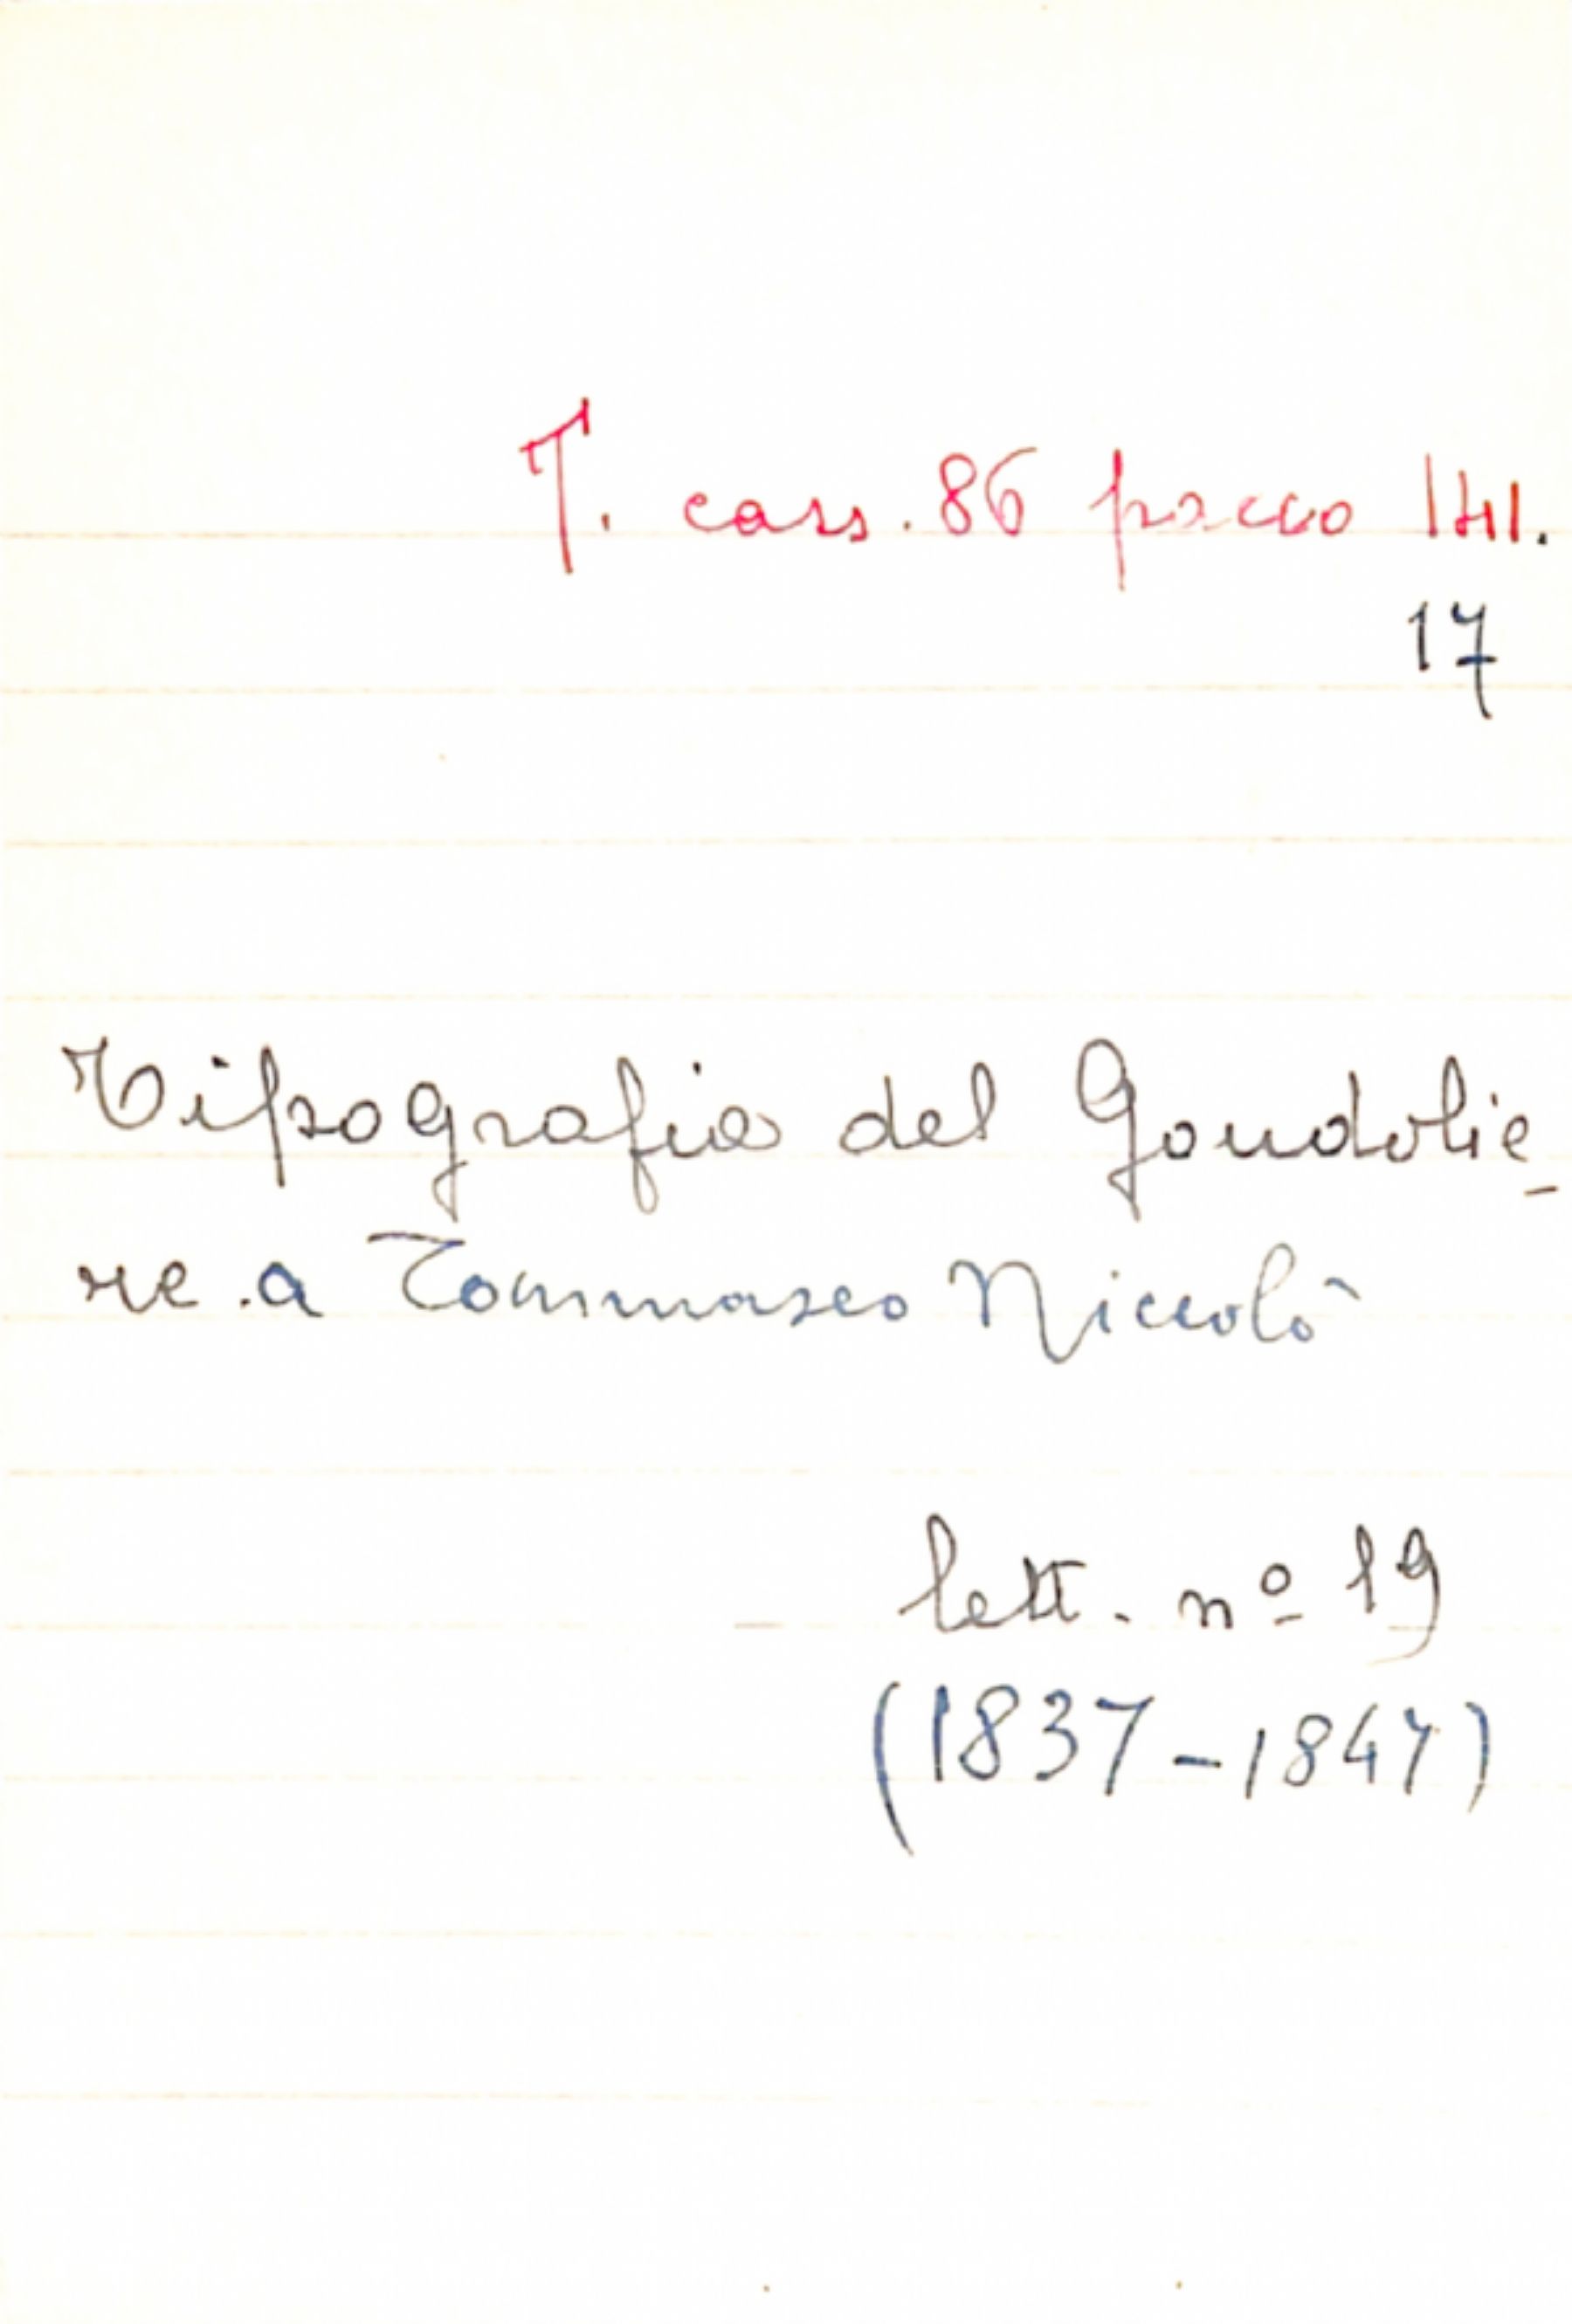 T. cass. 86 pacco 141.
17
Tipografia del Gondolie-
re. a Tommaseo Niccolò
lett. nº 19
(1837-1847)